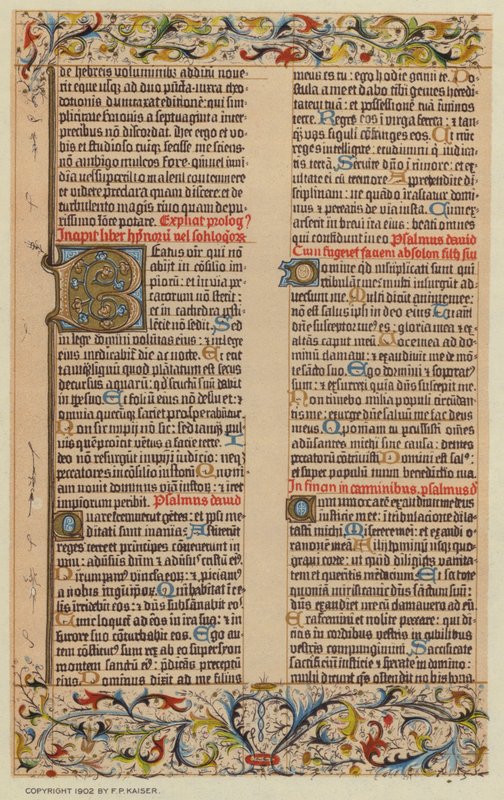 de hebreis voluminibus additum noverit eque usque ad duo puncta iuxta theo
dotionis dumtaxat editionem: qui sim
plicitate sermonis a septuaginta inter
pretibus non discordat. Hec ergo et vo
bis et studioso cuique fecisse me sciens
non ambigo multos fore
et videre preclara quam discere: et de
turbulento magis rivo quam de pu
rissimo fonte potare. Explicit prologus
Incipit liber hymnorum vel soliloquiorum
Beatus vir qui non
abijt in consilio im
piorum: et in via pec
catorum non stetit:
et in cathedra pesti
lentie non sedit. Sed
in lege domini voluntas eius: et in lege
eius meditabitur die ac nocte. Et erit
tamquam lignum quod plantatum est secus
decursus aquarum: quod fructum suum dabit
in tempore suo. Et folium eius non defluet: et
omnia quecumque faciet prosperabuntur.
Non sic impij non sic: sed tamquam pul
vis quem proicit ventus a facie terre. I
deo non resurgunt impij in iudicio: neque
peccatores in consilio iustorum. Quoni
am novit dominus viam iustorum: et iter
impiorum peribit. Psalmus david
Quare fremuerunt gentes: et populi me
ditati sunt inania. Astiterunt
reges terre et principes convenerunt in
unum: adversus dominum et adversus christum eius.
Dirumpamus vincula eorum: et proiciamus
a nobis iugum ipsorum. Qui habitat in ce
lis irridebit eos: et dominus subsannabit eos.
Tunc loquetur ad eos in ira sua: et in
furore suo conturbabit eos. Ego au
tem constitutus sum rex ab eo super syon
montem sanctum eius: predicans preceptum
eius. Dominus dixit ad me filius
meus es tu: ego hodie genui te. Po
stula a me et dabo tibi gentes heredi
tatem tuam: et possessionem tuam terminos
terre. Reges eos in virga ferrea: et tam
quam vas figuli confringes eos. Et nunc
reges intelligite: erudimini qui iudica
tis terram. Servite domino in timore: et ex
ultate ei cum tremore. Apprehendite di
sciplinam: ne quando irascatur domi
nus et pereatis de via iusta. Cum ex
arserit in brevi ira eius: beati omnes
qui confidunt in eo. Psalmus david
Cum fugeret faciem absolon filij sui
Domine quid multiplicati sunt qui
tribulant me: multi insurgunt ad
versum me. Multi dicunt anime mee:
non est salus ipsi in deo eius. Tu autem
domine susceptor meus es: gloria mea et ex
altans caput meum. Voce mea ad do
minum clamavi: et exaudivit me de mon
te sancto suo. Ego dormivi et soporatus
sum: et exsurrexi quia dominus suscepit me.
Non timebo milia populi circumdan
tis me: exurge domine salvum me fac deus
meus. Quoniam tu percussisti omnes
adversantes michi sine causa: dentes
peccatorum contrivisti. Domini est salus:
et super populum tuum benedictio tua.
In finem in carminibus. psalmus david
Cum invocarem exaudivit me deus
iusticie mee: in tribulatione dila
tasti michi. Miserere mei: et exaudi o
rationem meam. Filij hominum usquequo
gravi corde: ut quid diligitis vanita
tem et queritis mendacium. Et scitote
quoniam mirificavit dominus sanctum suum:
dominus exaudiet me cum clamavero ad eum.
Irascimini et nolite peccare: qui di
citis in cordibus vestris in cubilibus
vestris compungimini. Sacrificate
sacrificium iusticie et sperate in domino:
multi dicunt quis ostendit nobis bona.
COPYRIGHT 1902 BY F.P.KAISER.